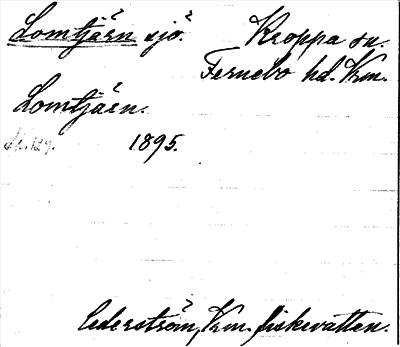 Lomtjärn sjö. Kroppa sn.
Fernebo hd. Vrm.
Lomtjärn.
1895.
Cederström, Vrm. fiskevatten.